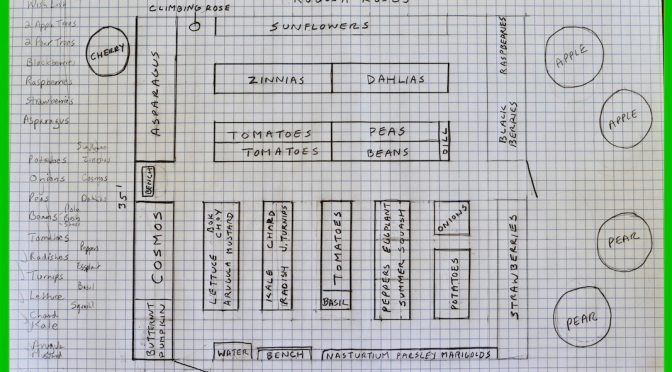 Wish List
2 Apple Trees
2 Pear Trees
Blackberries
Raspberries
Strawberries
Asparagus
Sunflowers
Potatoes
Zinnias
Onions
Cosmos
Peas
Dahlias
Beans
Pole
Bush
Tomatoes
Peppers
Radishes
Eggplant
Turnips
Basil
Lettuce
Squash
Chard
Kale
CLIMBING ROSE
CHERRY
ASPARAGUS
SUNFLOWERS
ZINNIAS
DAHLIAS
TOMATOES
PEAS
TOMATOES
BEANS
DILL
RASPBERRIES
BLACK
BERRIES
APPLE
APPLE
BENCH
35'
COSMOS
BUTTERNUT
PUMPKIN
LETTUCE BOK CHOY
ARUGULA MUSTARD
KALE CHARD
RADISH J. TURNIPS
TOMATOES
BASIL
PEPPERS EGGPLANT
SUMMER SQUASH
ONIONS
POTATOES
STRAWBERRIES
PEAR
PEAR
WATER
BENCH
NASTURTIUM PARSLEY MARIGOLDS